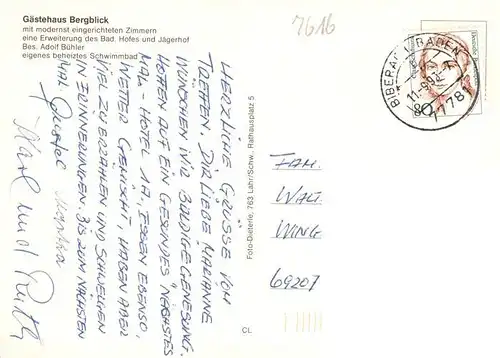 Gästehaus Bergblick
mit modernst eingerichteten Zimmern
eine Erweiterung des Bad. Hofes und Jägerhof
Bes. Adolf Bühler
eigenes beheiztes Schwimmbad
7616
HERZLICHE GRÜSSE VOM
TREFFEN. DIR LIEBE MARIANNE
WÜNSCHEN WIR BALDIGE GENESUNG.
HOFFEN AUF EIN GESUNDES NÄCHSTES
MAL - HOTEL 1A, ESSEN EBENSO,
WETTER GEMISCHT, HABEN ABER
VIEL ZU ERZÄHLEN UND SCHWELGEN
IN ERINNERUNGEN. BIS ZUM NÄCHSTEN
MAL. Gustel Martha
Karl und Ruth
Foto-Dieterle, 763 Lahr/Schw., Rathausplatz 5
CL
BIBERACH, BADEN
11.-9.92
77781
FAM.
WALT.
WING
69207